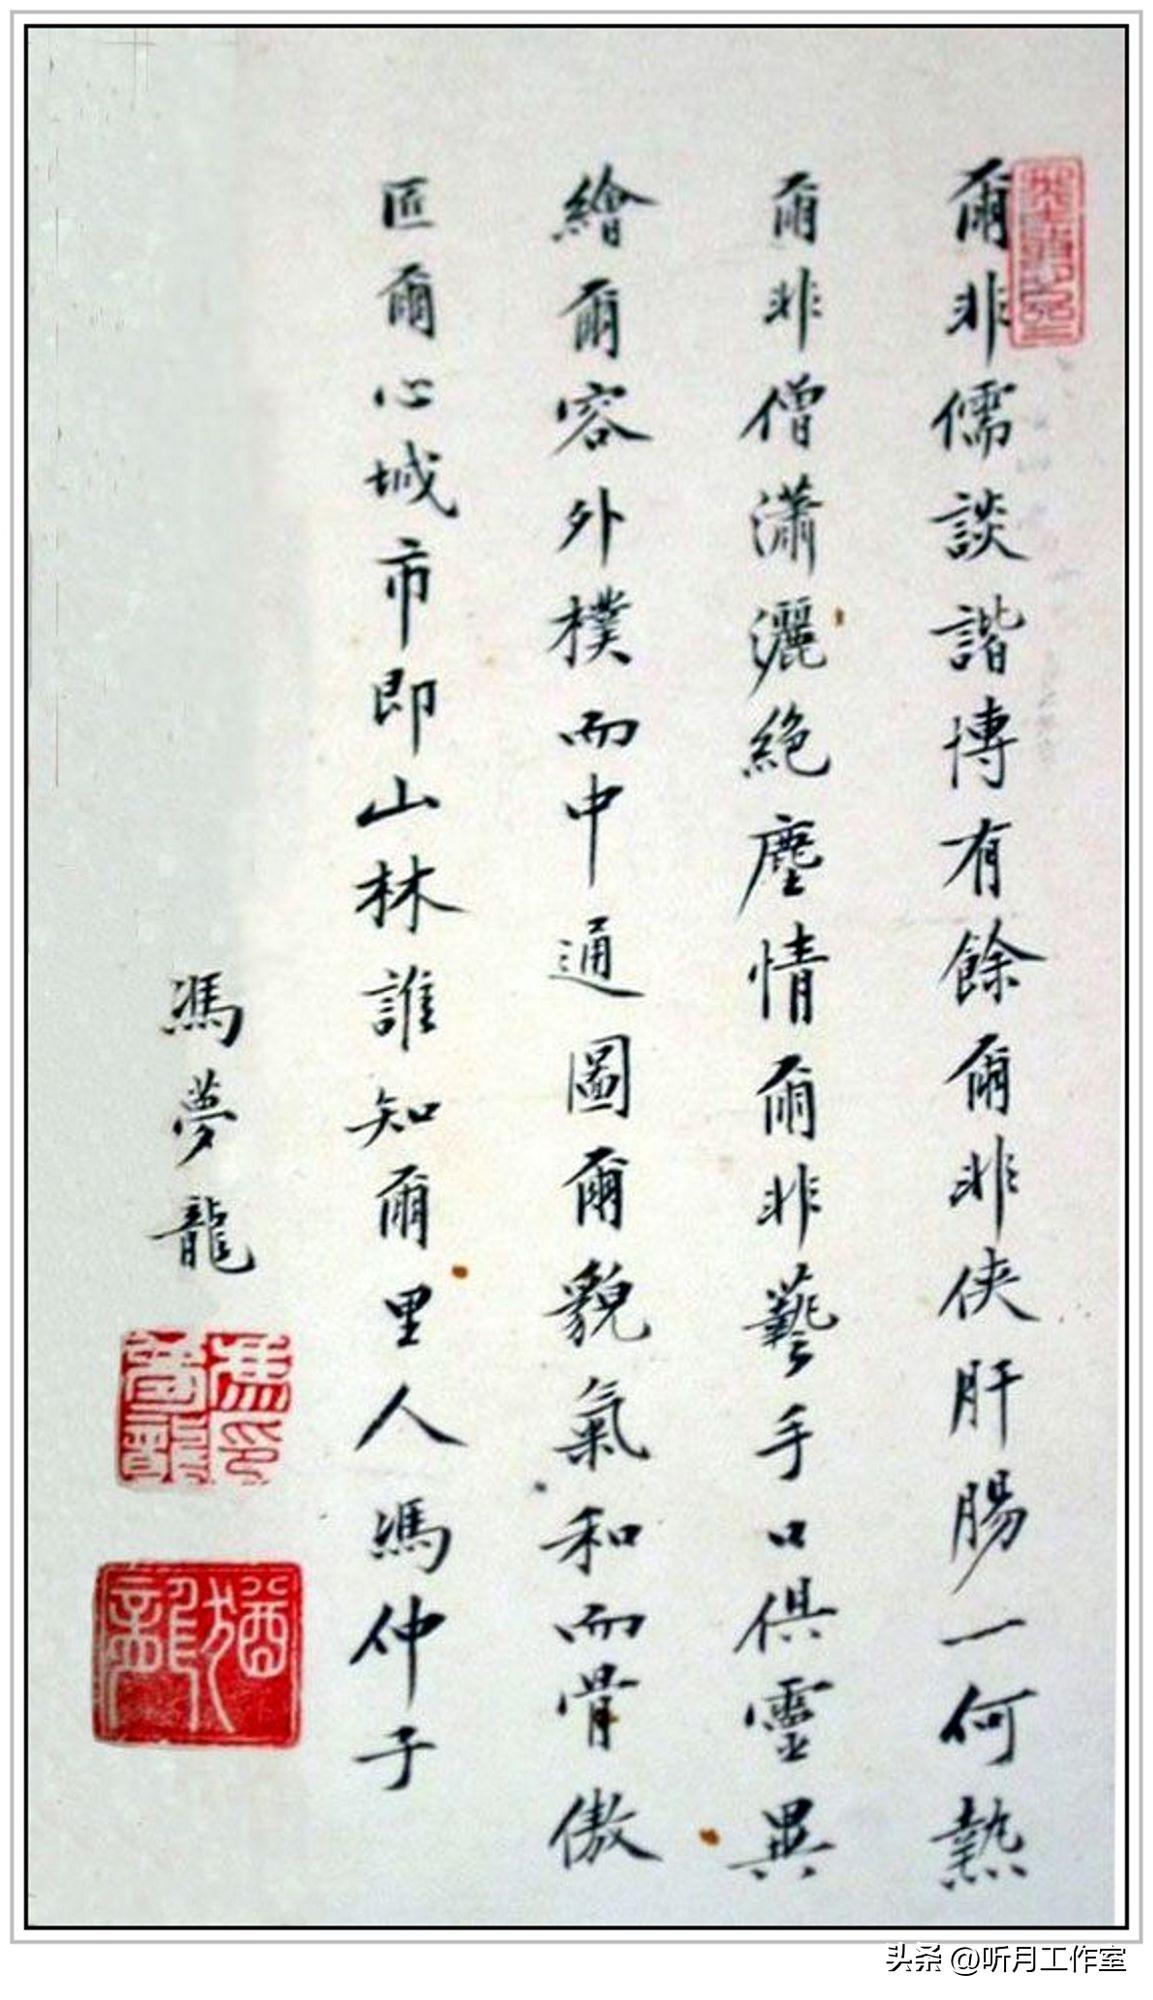 爾非儒談諧博有餘爾非俠肝腸一何熱
爾非僧瀟灑絕塵情爾非藝手口俱靈異
繪爾容外樸而中通圖爾貌氣和而骨傲
匠爾心城市即山林誰知爾里人馮仲子
馮夢龍
馮印夢龍
猶龍
头条 @听月工作室